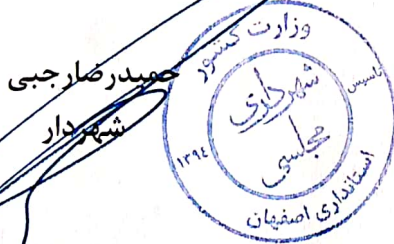 حمیدرضارجبی
شهردار
وزارت کشور
شهرداری
مجلسی
تاسیس
۱۳۹٤
استانداری اصفهان